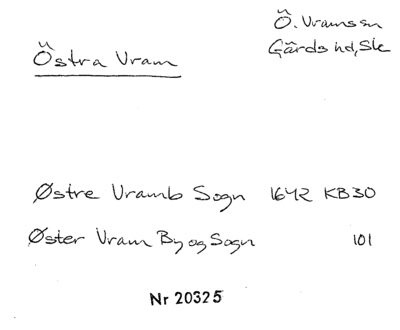 Ö. Vrams sn
Östra Vram
Gärds hd, Sk
Østre Vramb Sogn 1642 KB30
Øster Vram By og Sogn 101
Nr 20325